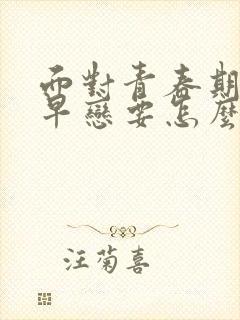 而對青春期
早戀要怎麼
汪菊喜